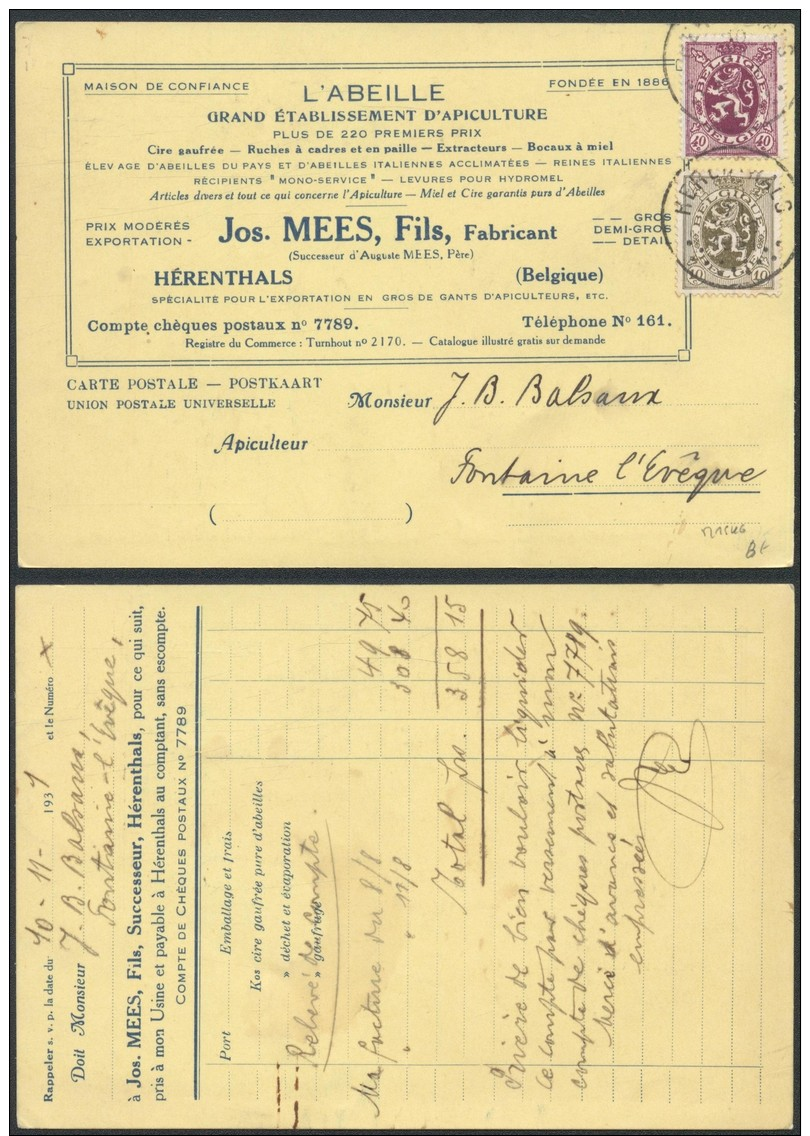 MAISON DE CONFIANCE
FONDÉE EN 1886
L'ABEILLE
GRAND ÉTABLISSEMENT D'APICULTURE
PLUS DE 220 PREMIERS PRIX
Cire gaufrée — Ruches à cadres et en paille — Extracteurs — Bocaux à miel
ÉLEVAGE D'ABEILLES DU PAYS ET D'ABEILLES ITALIENNES ACCLIMATÉES — REINES ITALIENNES
RÉCIPIENTS "MONO-SERVICE" — LEVURES POUR HYDROMEL
Articles divers et tout ce qui concerne l'Apiculture — Miel et Cire garantis purs d'Abeilles
PRIX MODÉRÉS
EXPORTATION -
Jos. MEES, Fils, Fabricant
— — GROS
DEMI-GROS
—— DETAIL
(Successeur d'Auguste MEES, Père)
HÉRENTHALS (Belgique)
SPÉCIALITÉ POUR L'EXPORTATION EN GROS DE GANTS D'APICULTEURS, ETC.
Compte chèques postaux nº 7789. Téléphone Nº 161.
Registre du Commerce : Turnhout nº 2170. — Catalogue illustré gratis sur demande
BELGIQUE
40 BELGIE 40
HERENTHALS
BELGIQUE
10 BELGIE 10
CARTE POSTALE — POSTKAART
UNION POSTALE UNIVERSELLE
Monsieur J. B. Balsaux
Apiculteur
Fontaine l'Evêque
( )
Rappeler s. v. p. la date du 10-11- 1931 et le Numéro x
Doit Monsieur J. B. Balsaux,
Fontaine-l'Evêque,
à Jos. MEES, Fils, Successeur, Hérenthals, pour ce qui suit,
pris à mon Usine et payable à Hérenthals au comptant, sans escompte.
COMPTE DE CHÈQUES POSTAUX Nº 7789
Port Emballage et frais
Kos cire gaufrée pure d'abeilles
» déchet et évaporation
» gaufrage
Relevé de compte.
Ma facture du 8/8 49 75
" " 12/8 308 40
Total frs. 358 15
Prière de bien vouloir liquider
ce compte par versement à mon
compte de chèques postaux Nº 7789.
Merci d'avance et salutations
empressées